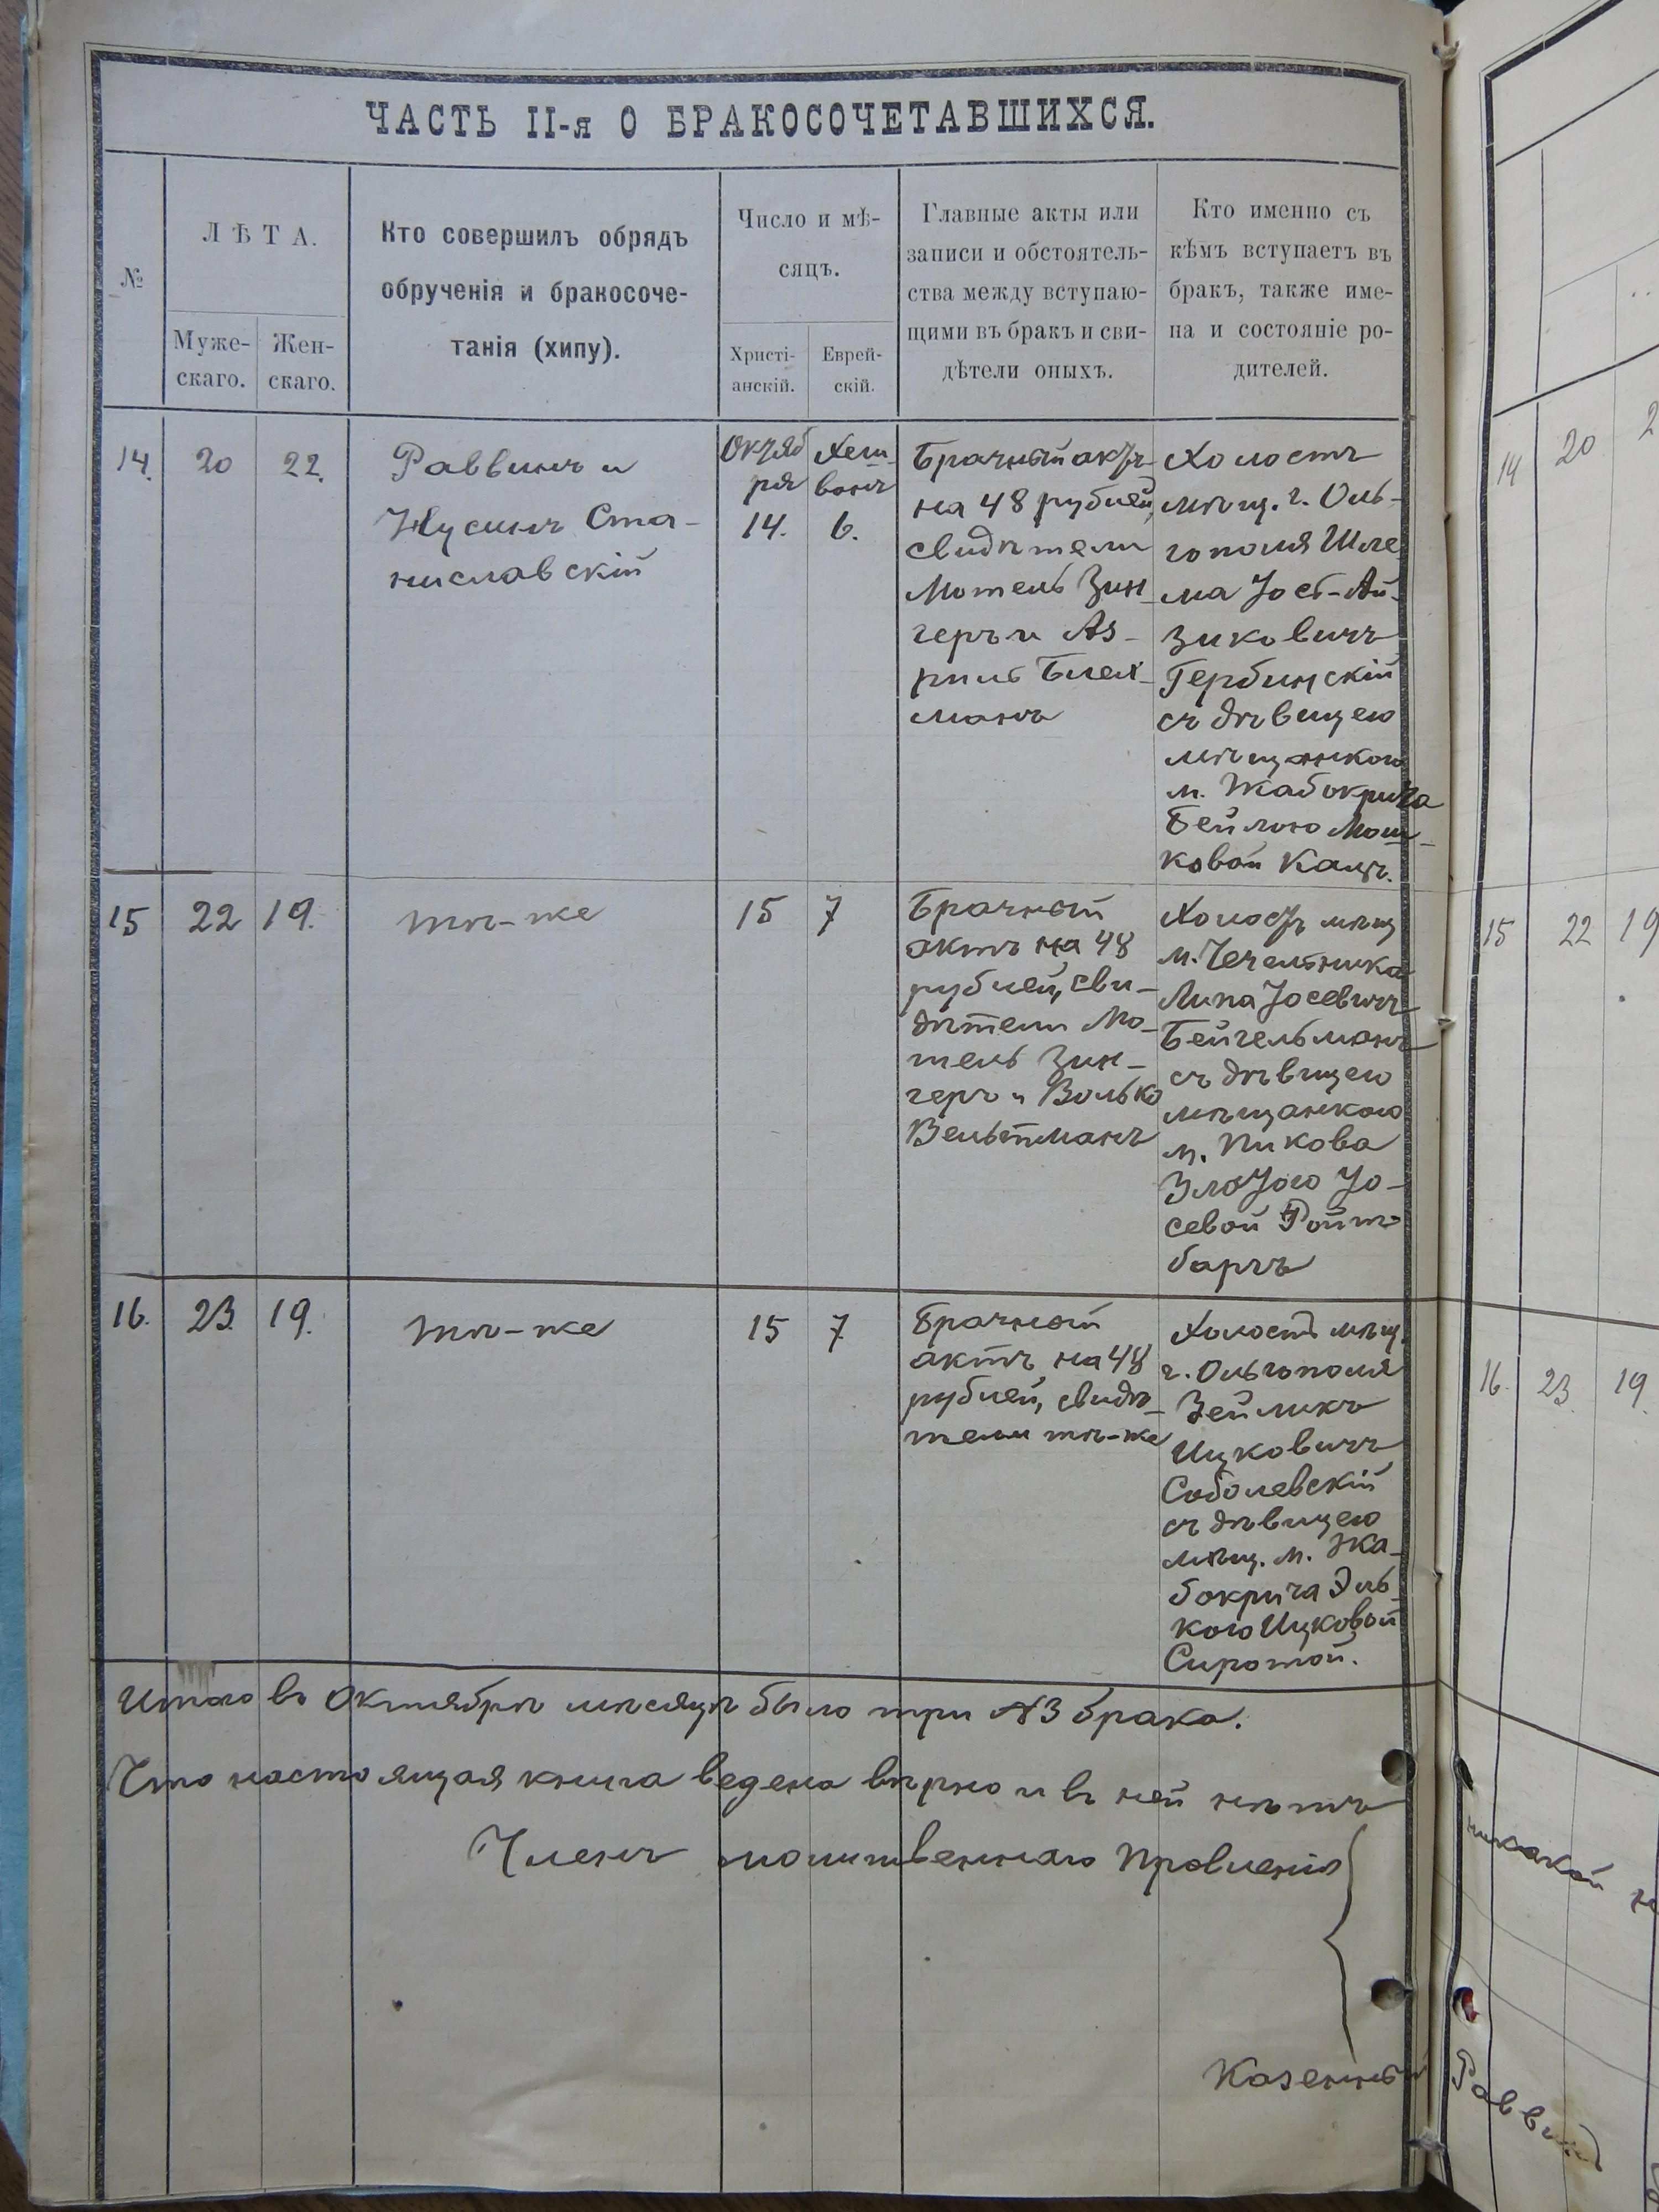 ЧАСТЬ II-я О БРАКОСОЧЕТАВШИХСЯ.
№
ЛѢТА.
Муже-
скаго.
Жен-
скаго.
Кто совершилъ обрядъ
обрученія и бракосоче-
танія (хипу).
Число и мѣ-
сяцъ.
Христі-
анскій.
Еврей-
скій.
Главные акты или
записи и обстоятель-
ства между вступаю-
щими въ бракъ и сви-
дѣтели оныхъ.
Кто именно съ
кѣмъ вступаетъ въ
бракъ, также име-
на и состояніе ро-
дителей.
14.
20
22.
Раввинъ и
Нусинъ Ста-
ниславскій
Октяб
ря
14.
Хеш-
ванъ
6.
Брачный актъ
на 48 рублей,
свидѣтели
Мотель Зин-
геръ и Аз-
риль Блех-
манъ
Холостъ
мѣщ. г. Оль-
гополя Шле
ма Іось-Ай-
зиковичъ
Гербинскій
съ дѣвицею
мѣщанкою
м. Жабокрича
Бейлою Мош-
ковой Кацъ.
15
22
19.
тѣ-же
15
7
Брачный
актъ на 48
рублей, сви-
дѣтели Мо-
тель Зин-
геръ и Волько
Вельтманъ
Холостъ мѣщ
м. Чечельника
Липа Іосевичъ
Бейгельманъ
съ дѣвицею
мѣщанкою
м. Пикова
Златою Іо-
севой Ройт-
баргъ
16.
23.
19.
тѣ-же
15
7
Брачный
актъ на 48
рублей, свидѣ-
тели тѣ-же
Холостъ мѣщ.
г. Ольгополя
Зейликъ
Ицковичъ
Соболевскій
съ дѣвицею
мѣщ. м. Жа-
бокрича Эль-
кою Ицковой
Сиротой.
Итого въ Октябрѣ мѣсяцѣ было три №3 брака.
Что настоящая книга ведена вѣрно и въ ней нѣтъ
Членъ молитвеннаго Правленія
Казенный
14
20
2
15
22
19
16.
23.
19.
никакой
Раввин